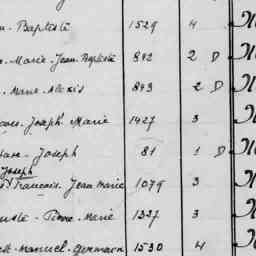 Baptiste 1529 4
Marie Jean Baptiste 892 2 D
Marie Alexis 893 2 D
Joseph Marie 1427 3
Joseph 81 1 D
Joseph
François Jean Marie 1079 3
Pierre Marie 1337 3
Manuel Germain 1530 4